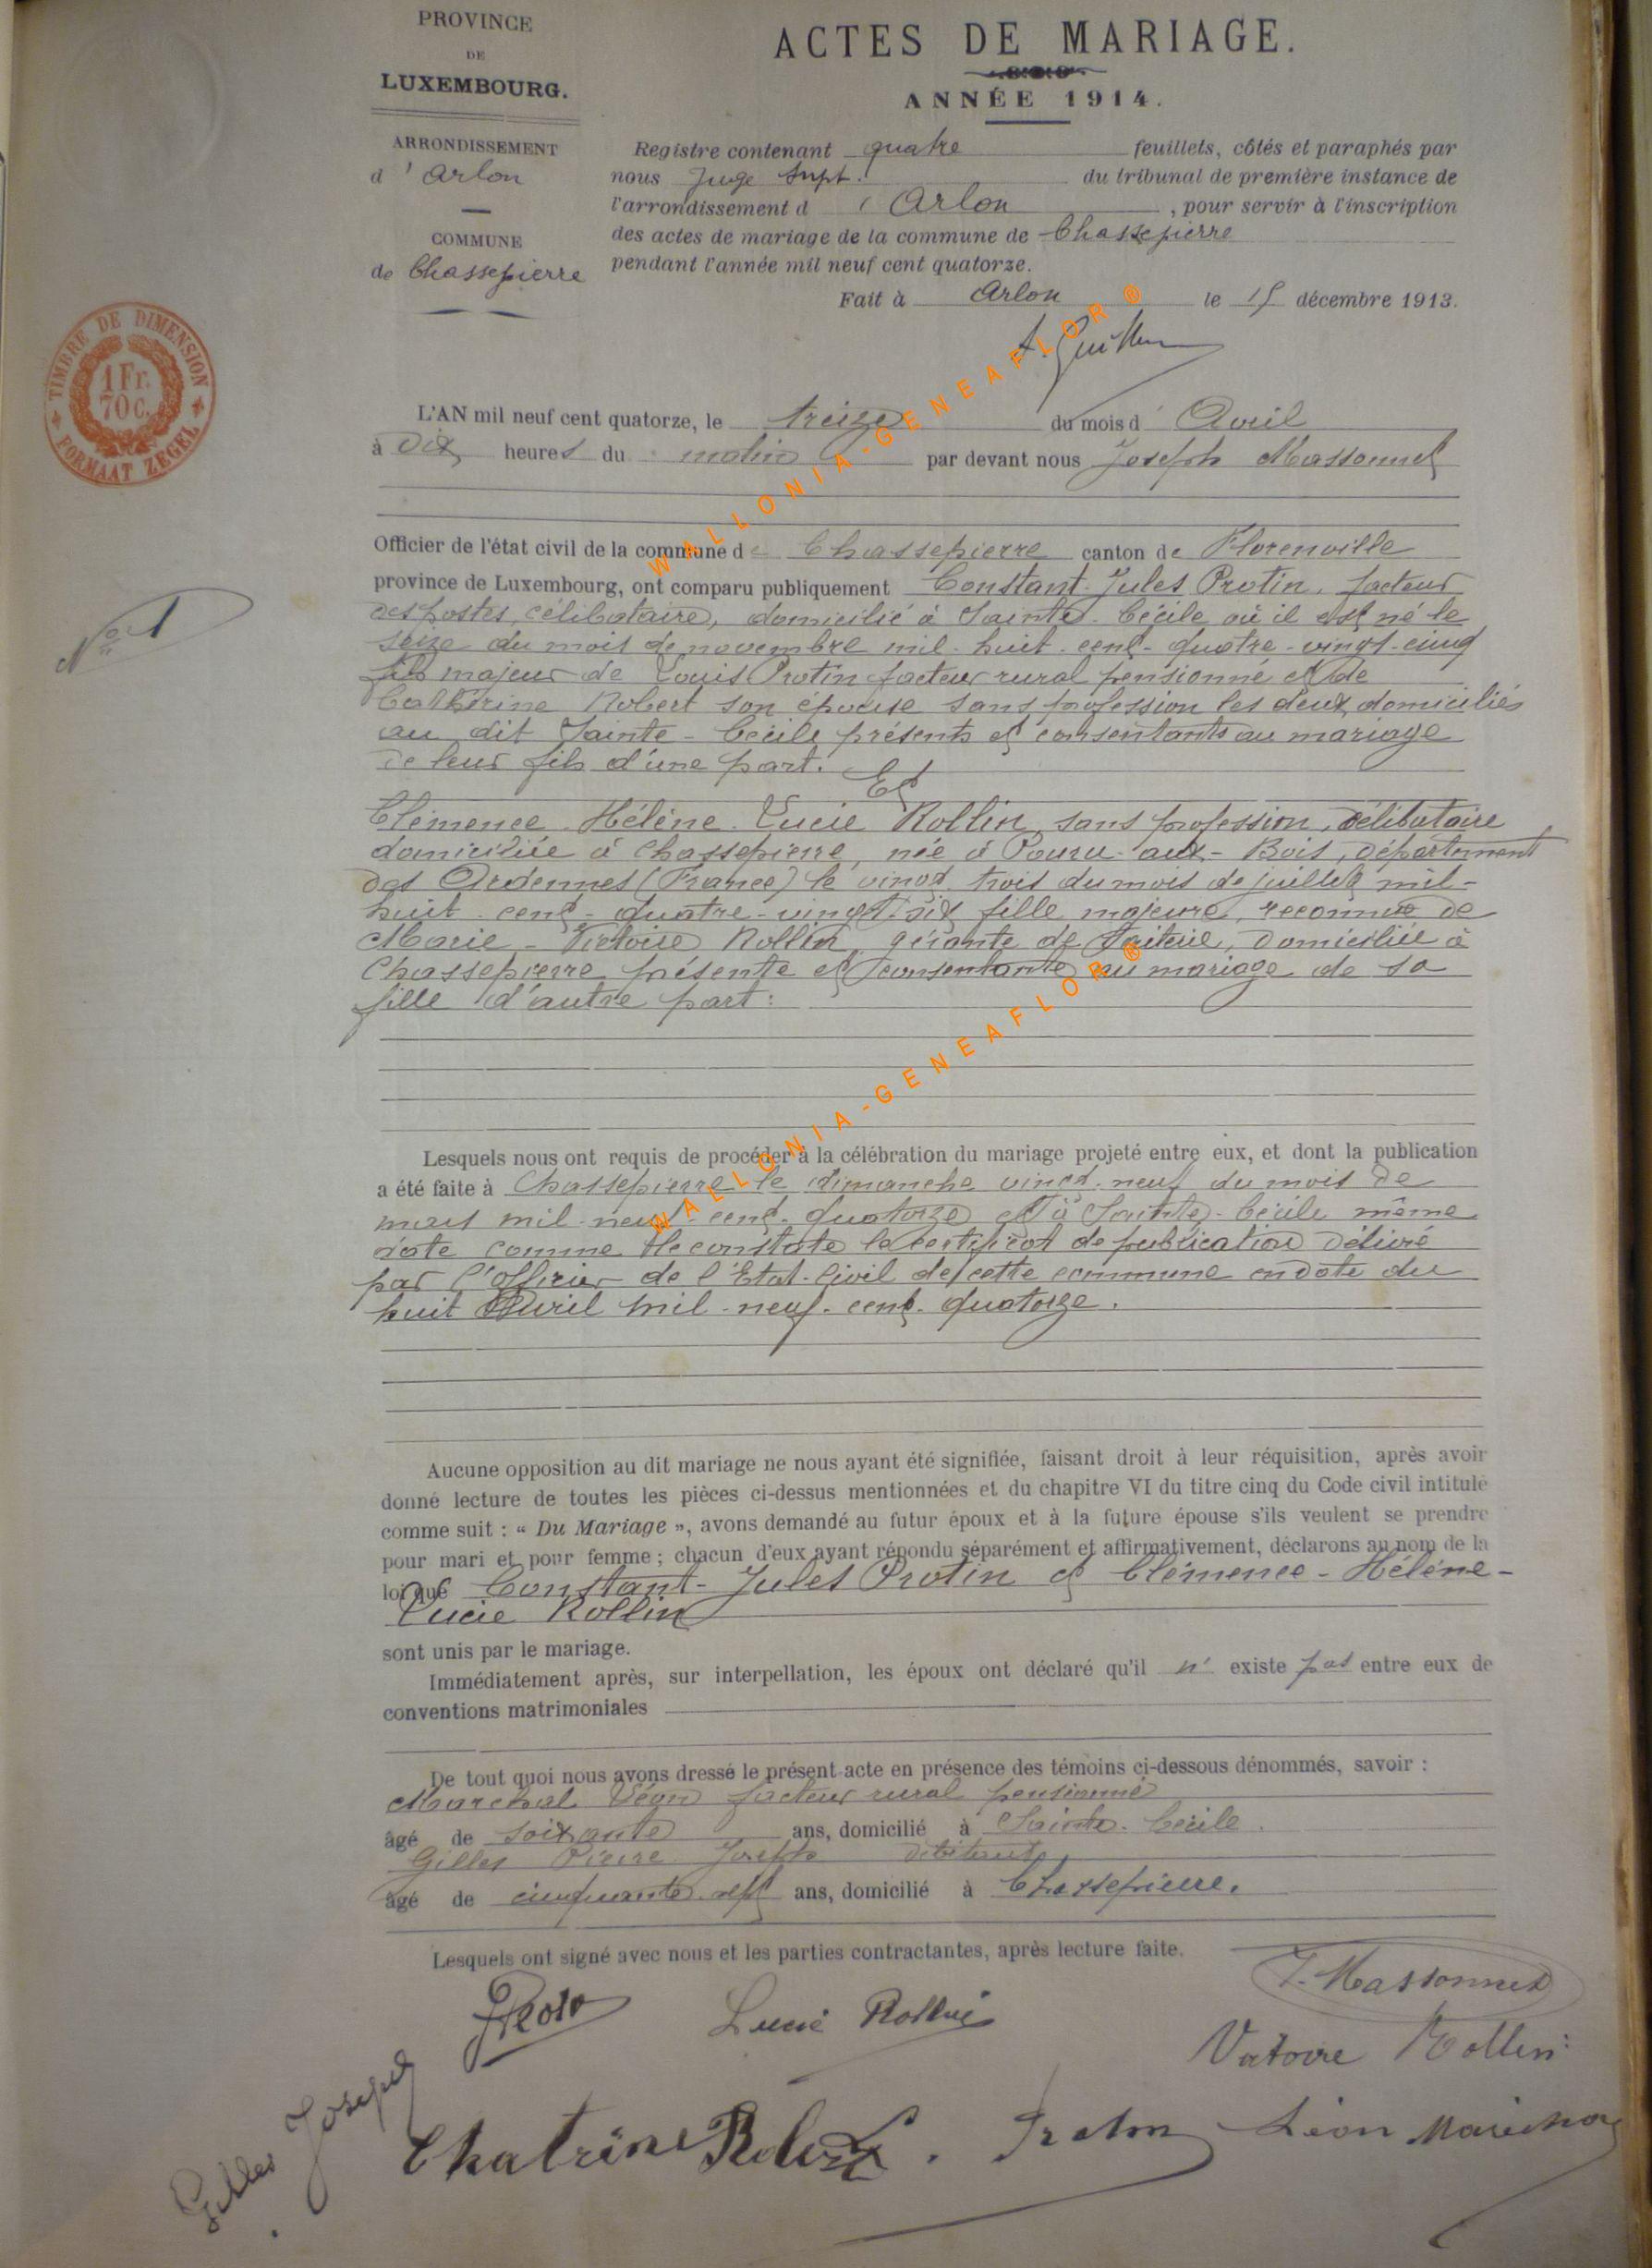 PROVINCE
DE
LUXEMBOURG.
ARRONDISSEMENT
d'Arlon
COMMUNE
de Chassepierre
ACTES DE MARIAGE.
ANNÉE 1914.
Registre contenant quatre feuillets, côtés et paraphés par
nous Juge Supt. du tribunal de première instance de
l'arrondissement d'Arlon, pour servir à l'inscription
des actes de mariage de la commune de Chassepierre
pendant l'année mil neuf cent quatorze.
Fait à Arlon le 15 décembre 1913.
TIMBRE DE DIMENSION
1 Fr.
70 c.
FORMAAT ZEGEL
L'AN mil neuf cent quatorze, le treize du mois d'Avril
à Dix heures du matin par devant nous Joseph Massonnet
Officier de l'état civil de la commune de Chassepierre canton de Florenville
province de Luxembourg, ont comparu publiquement Constant-Jules Protin, facteur
des postes, célibataire, domicilié à Sainte-Cécile où il est né le
seize du mois de novembre mil-huit-cent-quatre-vingt-cinq
fils majeur de Louis Protin facteur rural pensionné et de
Catherine Robert son épouse sans profession les deux domiciliés
au dit Sainte-Cécile présents et consentants au mariage
de leur fils d'une part.
Et
N° 1
Clémence-Hélène-Lucie Rollin, sans profession, célibataire
domiciliée à Chassepierre, née à Pouru-aux-Bois, département
des Ardennes (France) le vingt trois du mois de juillet mil-
huit-cent-quatre-vingt-six fille majeure, reconnue de
Marie-Victoire Rollin, gérante de laiterie, domiciliée à
Chassepierre présente et consentante au mariage de sa
fille d'autre part:
Lesquels nous ont requis de procéder à la célébration du mariage projeté entre eux, et dont la publication
a été faite à Chassepierre le dimanche vingt-neuf du mois de
mars mil-neuf-cent-quatorze et à Sainte-Cécile même
date comme le constate le certificat de publication délivré
par l'officier de l'Etat-Civil de cette commune en date du
huit Avril mil-neuf-cent-quatorze.
Aucune opposition au dit mariage ne nous ayant été signifiée, faisant droit à leur réquisition, après avoir
donné lecture de toutes les pièces ci-dessus mentionnées et du chapitre VI du titre cinq du Code civil intitulé
comme suit : « Du Mariage », avons demandé au futur époux et à la future épouse s'ils veulent se prendre
pour mari et pour femme ; chacun d'eux ayant répondu séparément et affirmativement, déclarons au nom de la
loi que Constant-Jules Protin et Clémence-Hélène-
Lucie Rollin
sont unis par le mariage.
Immédiatement après, sur interpellation, les époux ont déclaré qu'il n' existe pas entre eux de
conventions matrimoniales
De tout quoi nous avons dressé le présent acte en présence des témoins ci-dessous dénommés, savoir :
Marechal Léon facteur rural pensionné
âgé de soixante ans, domicilié à Sainte-Cécile.
Gilles Pierre Joseph débitant
âgé de cinquante-sept ans, domicilié à Chassepierre.
Lesquels ont signé avec nous et les parties contractantes, après lecture faite.
J. Massonnet
Lucie Rollin
Victoire Rollin
Gilles Joseph
Chatrine Robert. Protin Léon Marechal
WALLONIA-GENEAFLOR ®
WALLONIA-GENEAFLOR ®